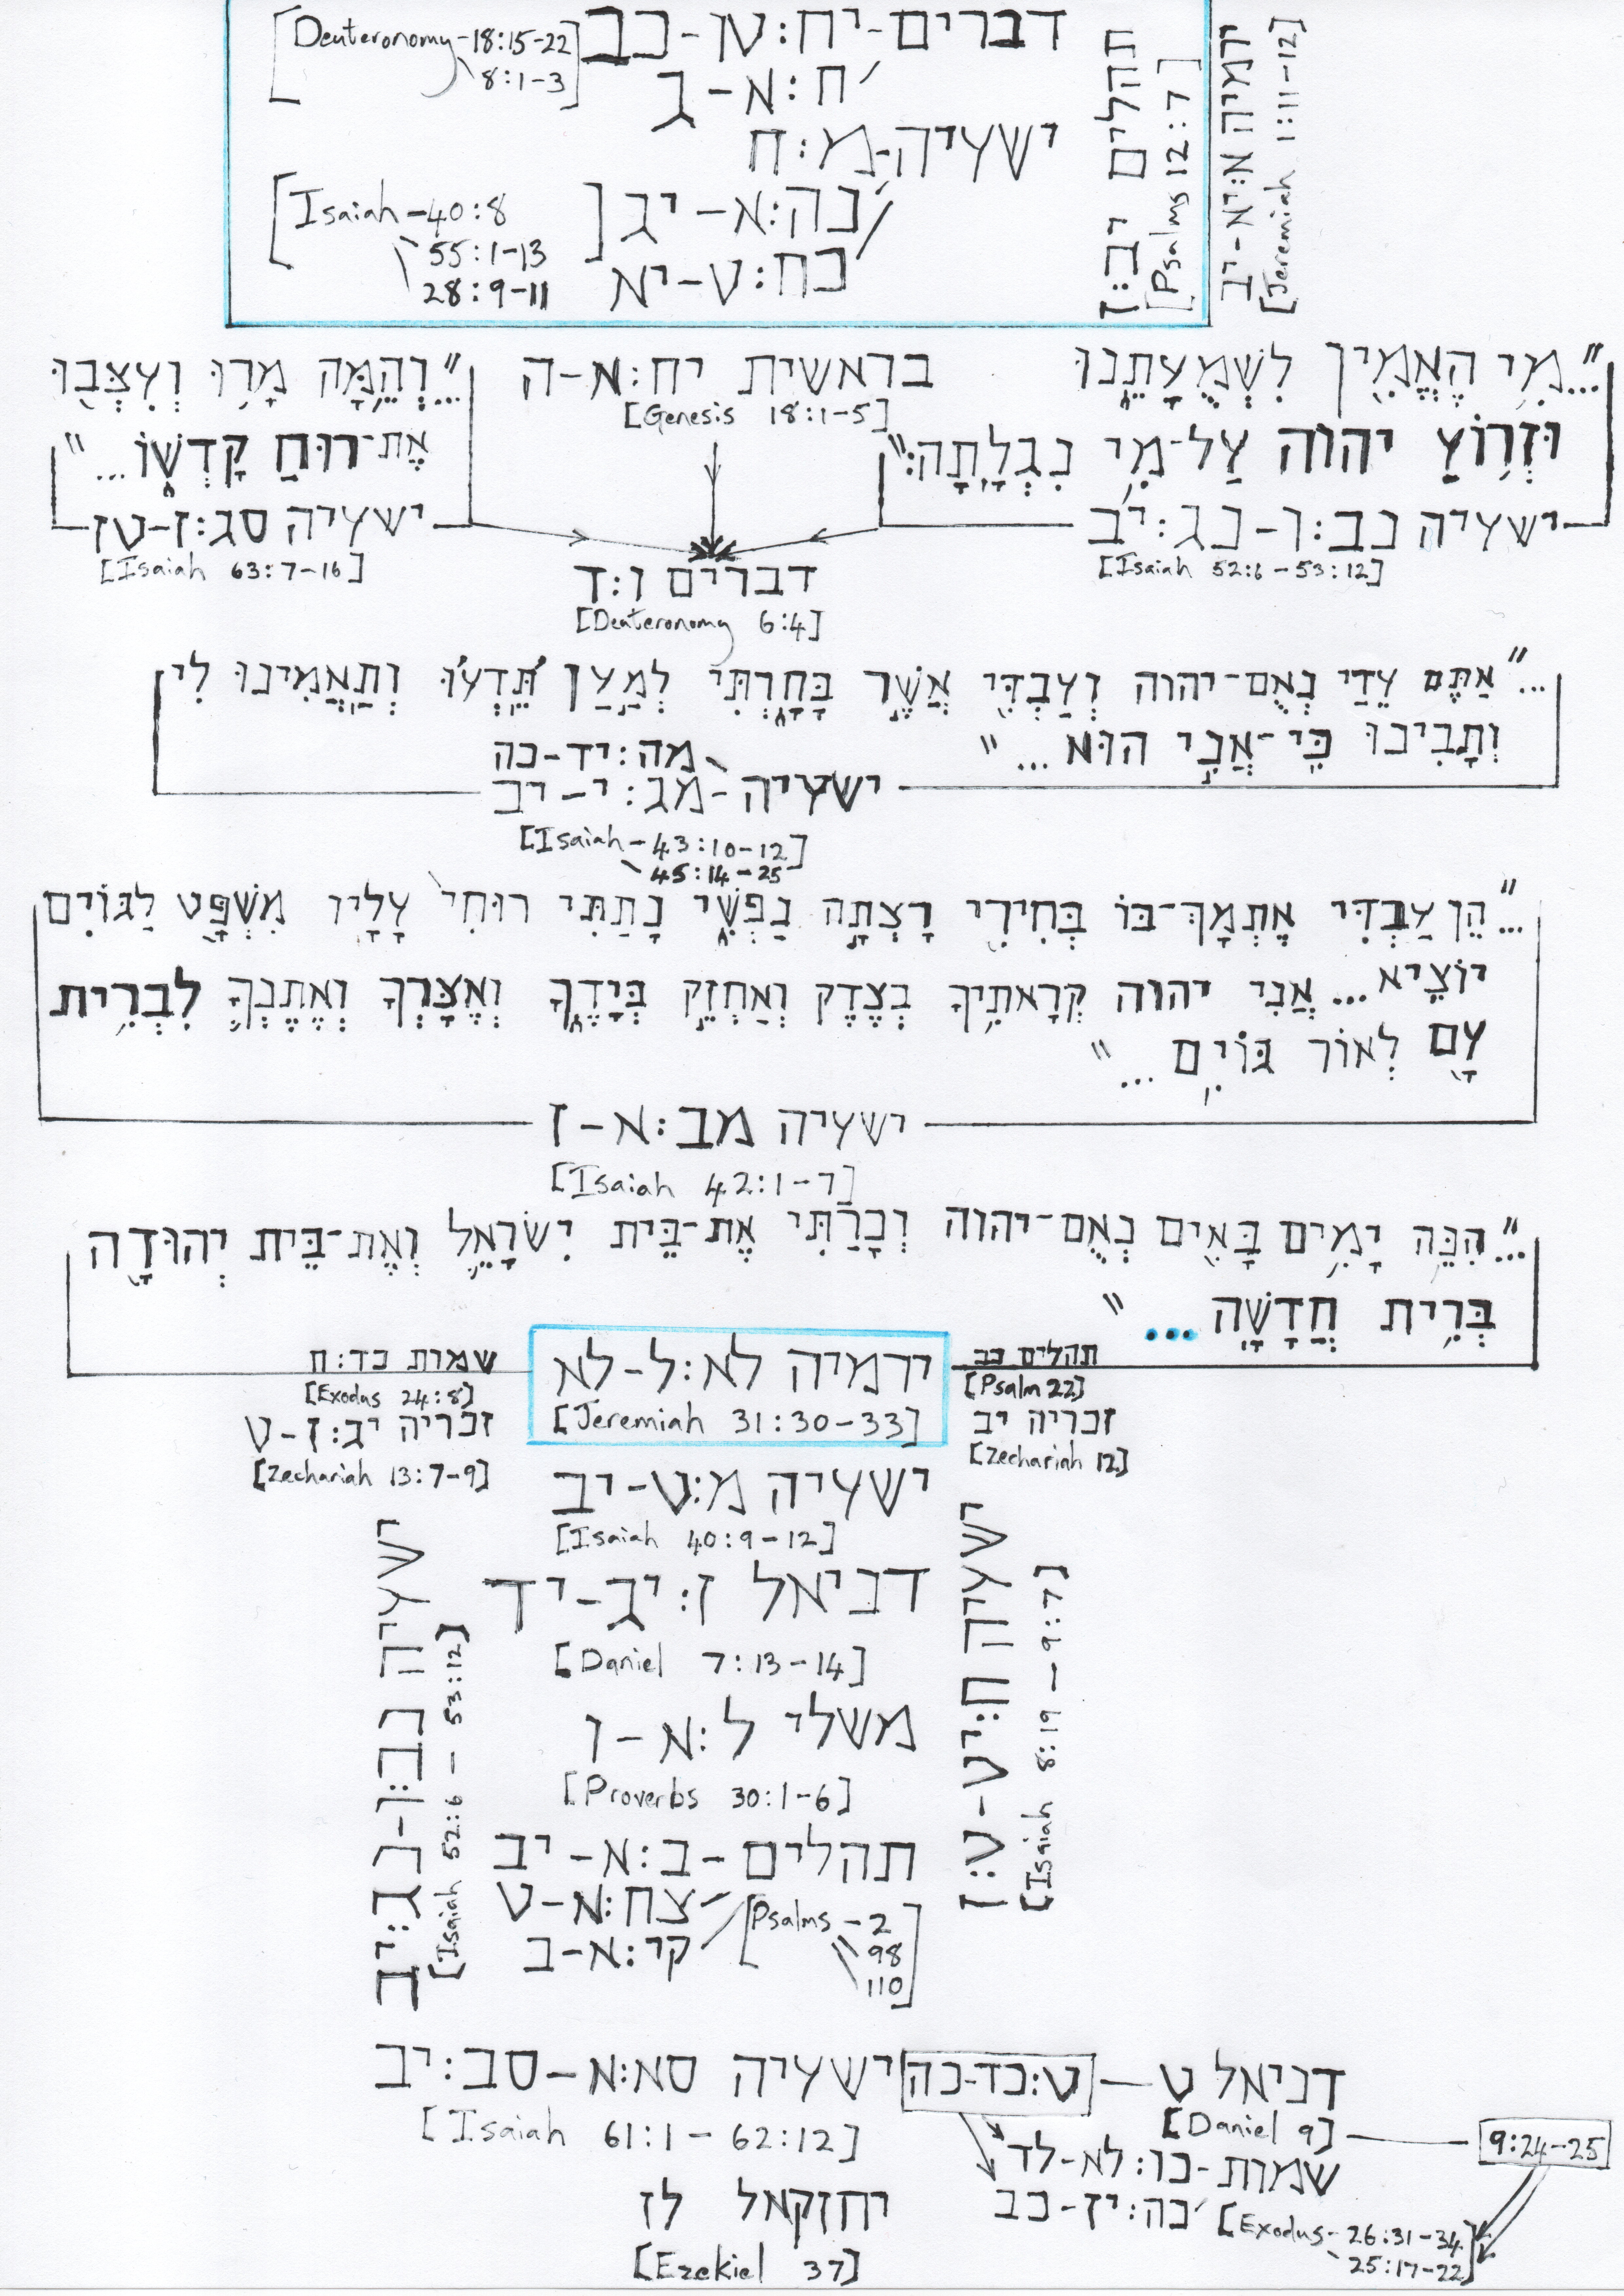 דברים-יח:טו-כב
[Deuteronomy-18:15-22
ח:א-ג
8:1-3]
ישעיה-מ:ח
נה:א-יג
[Isaiah-40:8
55:1-13
כח:ט-יא
28:9-11]
תהלים יב:ז
[Psalms 12:7]
ירמיה א:יא-יב
[Jeremiah 1:11-12]
"...מִי הֶאֱמִין לִשְׁמֻעָתֵנוּ
וּזְרוֹעַ יהוה עַל-מִי נִגְלָתָה:"
ישעיה נב:ו-נג:יב
[Isaiah 52:6-53:12]
בראשית יח:א-ה
[Genesis 18:1-5]
"...וְהֵמָּה מָרוּ וְעִצְּבוּ
אֶת-רוּחַ קָדְשׁוֹ..."
ישעיה סג:ז-טז
[Isaiah 63:7-16]
דברים ו:ד
[Deuteronomy 6:4]
"...אַתֶּם עֵדַי נְאֻם-יהוה וְעַבְדִּי אֲשֶׁר בָּחָרְתִּי לְמַעַן תֵּדְעוּ וְתַאֲמִינוּ לִי
וְתָבִינוּ כִּי-אֲנִי הוּא..."
מה:יד-כה
ישעיה-מג:י-יב
[Isaiah-43:10-12]
45:14-25
"...הֵן עַבְדִּי אֶתְמָךְ-בּוֹ בְּחִירִי רָצְתָה נַפְשִׁי נָתַתִּי רוּחִי עָלָיו מִשְׁפָּט לַגּוֹיִם
יוֹצִיא...אֲנִי יהוה קְרָאתִיךָ בְצֶדֶק וְאַחְזֵק בְּיָדֶךָ וְאֶצָּרְךָ וְאֶתֶּנְךָ לִבְרִית
עָם לְאוֹר גּוֹיִם..."
ישעיה מב:א-ז
[Isaiah 42:1-7]
"...הִנֵּה יָמִים בָּאִים נְאֻם-יהוה וְכָרַתִּי אֶת-בֵּית יִשְׂרָאֵל וְאֶת-בֵּית יְהוּדָה
בְּרִית חֲדָשָׁה..."
תהלים כב
[Psalm 22]
זכריה יב
[Zechariah 12]
ירמיה לא:ל-לא
[Jeremiah 31:30-33]
שמות כד:ח
[Exodus 24:8]
זכריה יג:ז-ט
[Zechariah 13:7-9]
ישעיה מ:ט-יב
[Isaiah 40:9-12]
דניאל ז:יג-יד
[Daniel 7:13-14]
משלי ל:א-ו
[Proverbs 30:1-6]
תהלים-ב:א-יב
צח:א-ט
קי:א-ב
[Psalms-2
98
110]
ישעיה ח:יט-ט:ז
[Isaiah 8:19-9:7]
[Isaiah 52:6-53:12]
דניאל ט-ט:כד-כה
[Daniel 9]
9:24-25
שמות-כו:לא-לד
כה:יז-כב
[Exodus-26:31-34
25:17-22]
ישעיה סא:א-סב:יב
[Isaiah 61:1-62:12]
יחזקאל לז
[Ezekiel 37]